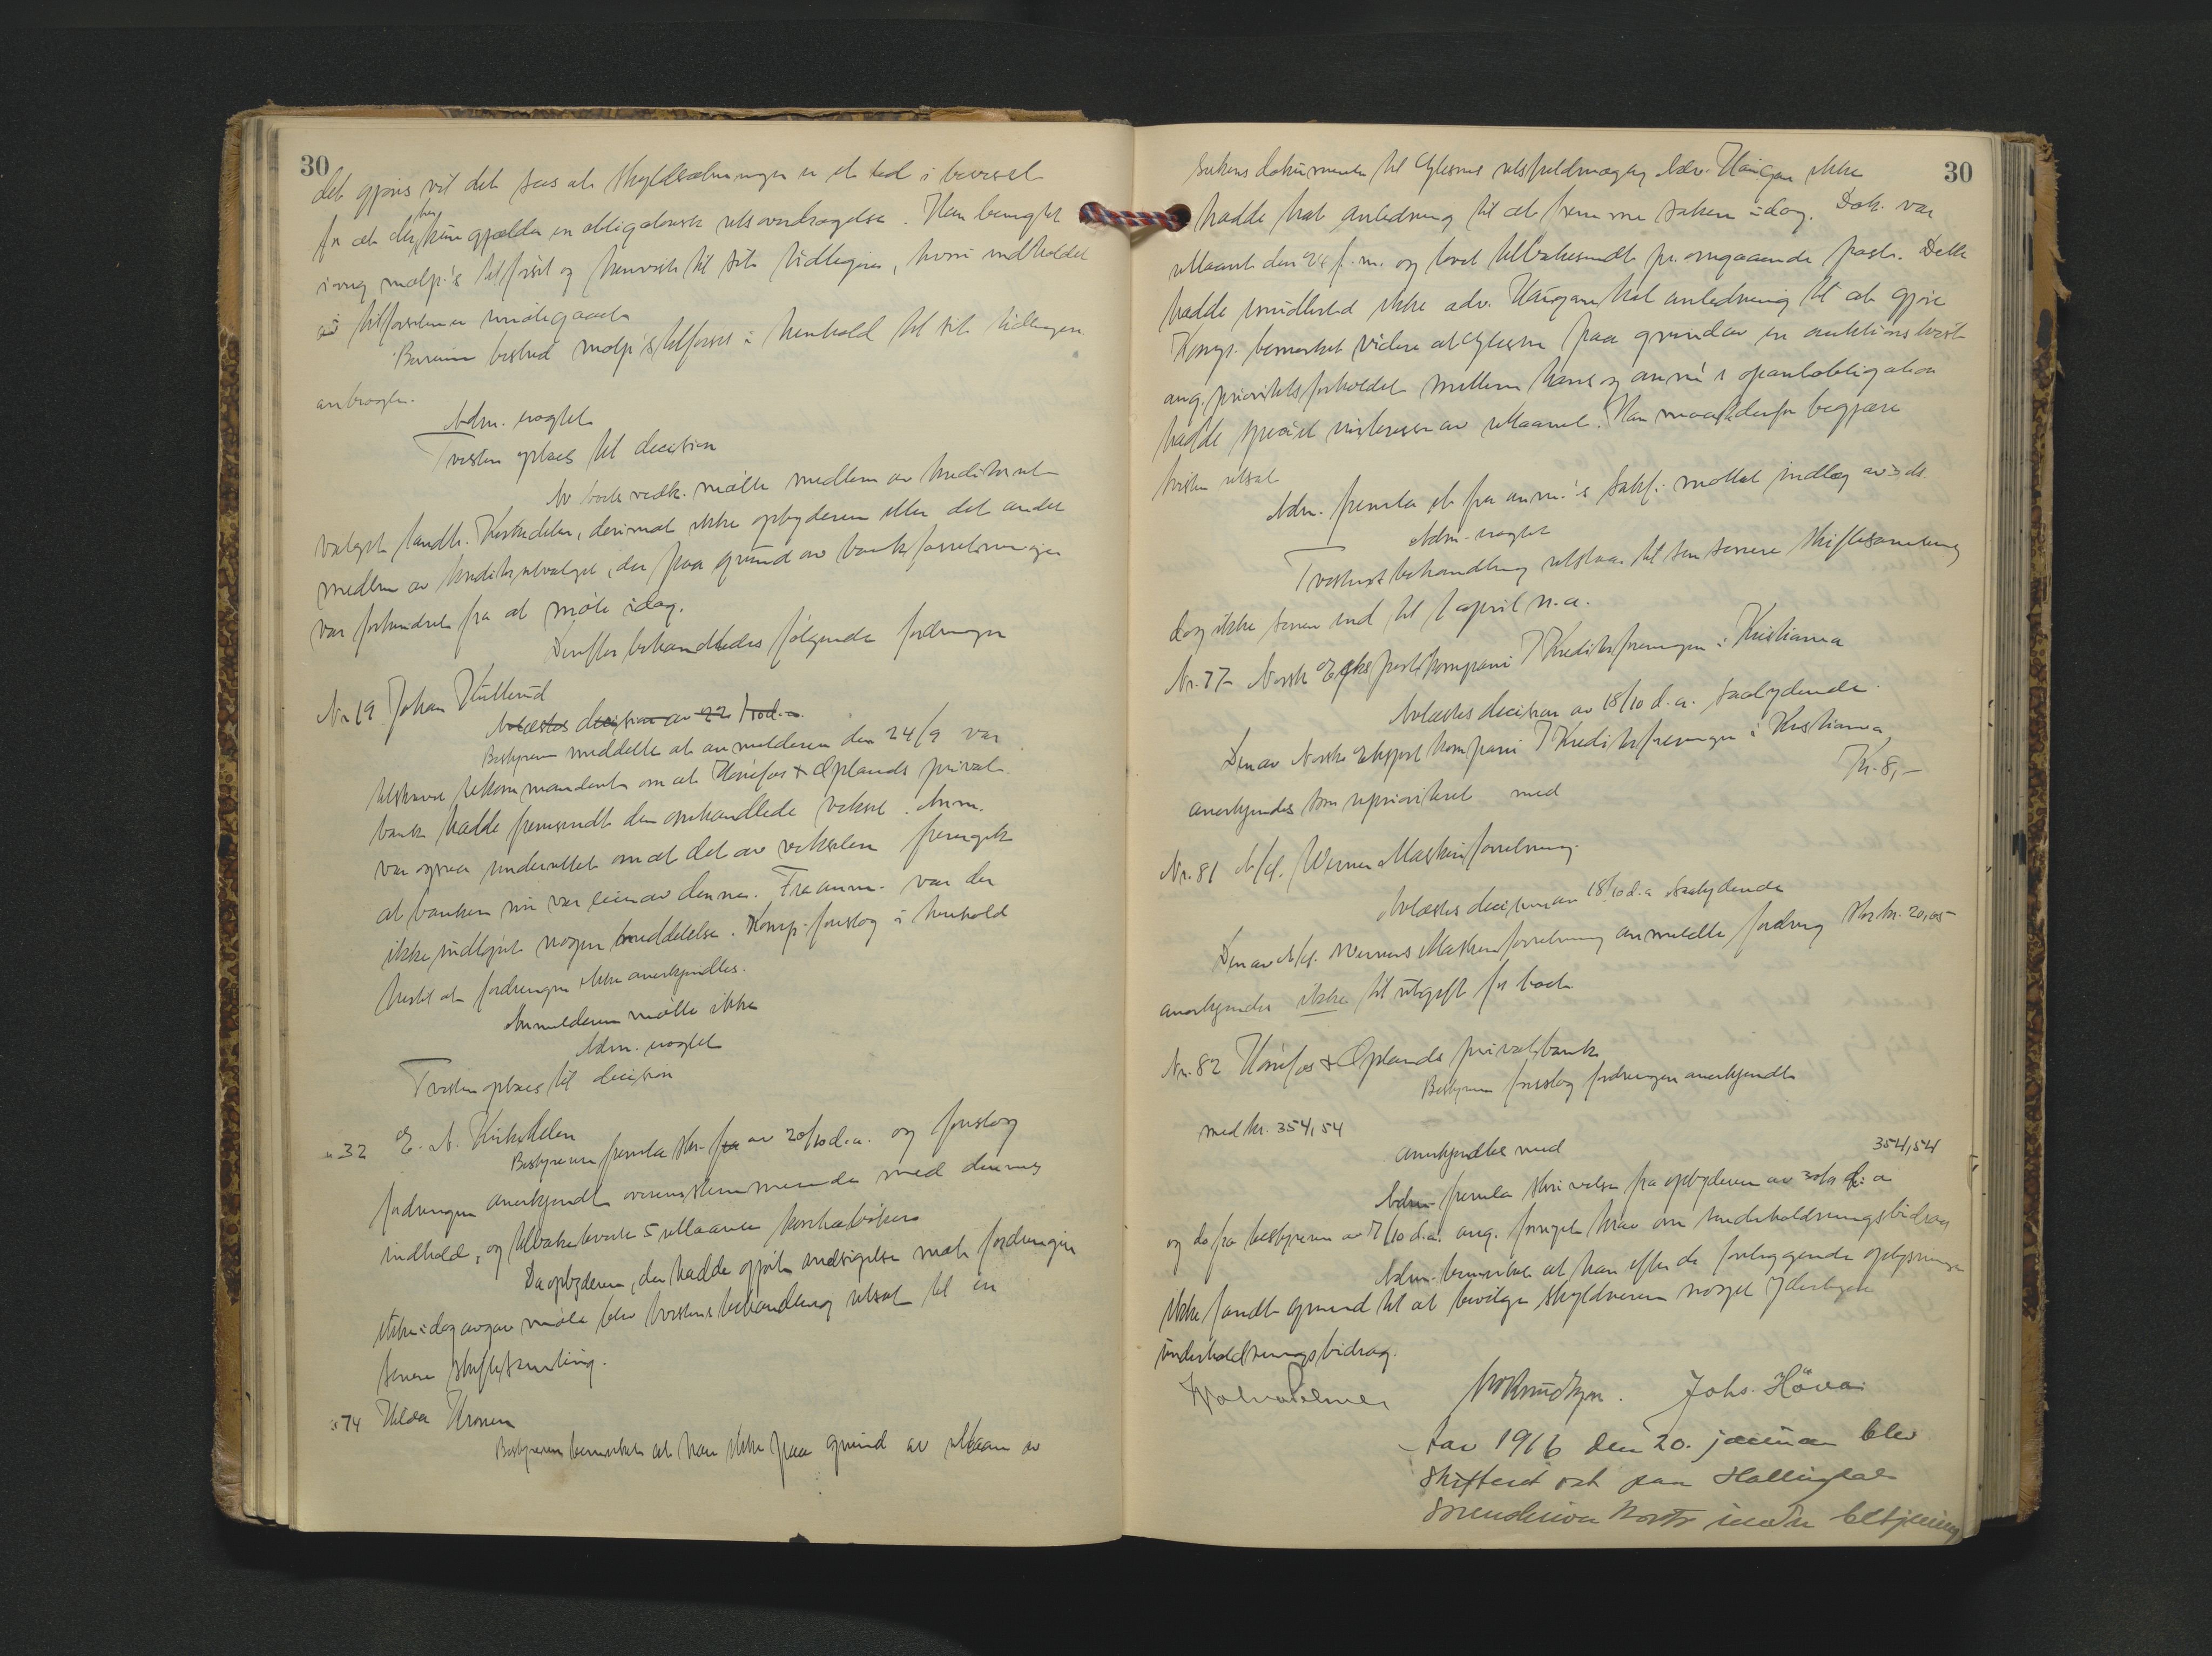 30
det gjøres vil det sees at skyldsætningen er et led i beviset
for at det her kun gjælder en obligatorisk retsoverdragelse. Han benegtet
i motp.'s tilførsel og henviste til sit tidligere, hvori indholdet
av tilførselen er imøtegaaet
bestred motp's tilførsel i henhold til sit tidligere
anbragte.
Adm. negtet
Tvisten optaes til decision
Av boets vedk. møtte medlem av kreditorut-
valget landh. Kirkedelen, derimot ikke opbyderen eller det andet
medlem av kreditorutvalget, der paa grund av bankforretninger
var forhindret fra at møte idag.
Derefter behandledes følgende fordringer
Nr 19 Johan Hullerud
Avlæstes decision av 22 d.a.
Bestyreren meddelte at anmelderen den 24/9 var
tilskrevet rekommandert om at Hønefos & Oplands privat-
bank hadde fremsendt den omhandlede veksel. Anm.
var ogsaa underrettet om at det av vekselen fremgik
at banken nu var eier av denne. Fra anm. var der
ikke indløpet nogen meddelelse. Komp. foreslog i henhold
hertil at fordringen ikke anerkjendtes.
Anmelderen møtte ikke
Adm. negtet
Tvisten optaes til decision
" 32 E. A. Kirkedelen
Bestyreren fremla skr. fra av 20/10 d.a. og foreslog
fordringen anerkjendt overensstemmende med dennes
indhold, og tilbakeleverte 5 utlaante kontrabøker
Da opbyderen, der hadde gjort indsigelse mot fordringen
ikke idag avgav møte blev tvistens behandling utsat til en
senere skiftesamling.
" 74 Hilda Kronen
Bestyreren bemerket at han ikke paa grund av utlaan av
30
sakens dokumenter til Glesnes retsfuldmægtig adv. Haugan ikke
hadde hat anledning til at fremme saken idag. Dok. var
utlaant den 24 f.m. og lovet tilbakesendt pr. omgaaende post. Dette
hadde imidlertid ikke adv. Haugan hat anledning til at gjøre
Komp. bemerket videre at Glesne paa grund av en auktionstvist
ang. prioritetsforholdet mellem hans og anm's pantobligation
hadde speciel interesse av utlaanet. Han maatte derfor begjære
tvisten utsat
Adm. fremla et fra anm.'s sakf. mottat indlæg av ds.
Adm. negtet
Tvistens behandling utstaar til en senere skiftesamling
dog ikke senere end til 1 april n.a.
Nr. 77 Norsk Eksportkompani / Kreditorforeningen i Kristiania
Avlæstes decision av 18/10 d.a. saalydende:
Den av Norsk Eksportkompani / Kreditorforeningen i Kristiania
anerkjendes som uprioritert med
Kr. 8,-
Nr. 81 A/S. Werner Maskinforretning.
Avlæstes decision av 18/10 d.a. saalydende
Den av A/S. Werners Maskinforretning anmeldte fordring stor kr. 20,05
anerkjendes ikke til utgift for boet
Nr. 82 Hønefos & Oplands privatbank
Bestyreren foreslog fordringen anerkjendt
med kr. 354,54
anerkjendtes med 354,54
Adm. fremla skrivelse fra opbyderen av 30/9 d.a
og do fra bestyreren av 7/10 d.a. ang. fornyet krav om underholdningsbidrag
Adm. bemerket at han efter de foreliggende oplysninger
ikke fandt grund til at bevilge skyldneren noget yderligere
underholdningsbidrag.
Johs. Höva
Aar 1916 den 20. januar blev
skifteret sat paa Hallingdal
Sorenskriverkontor under betjening